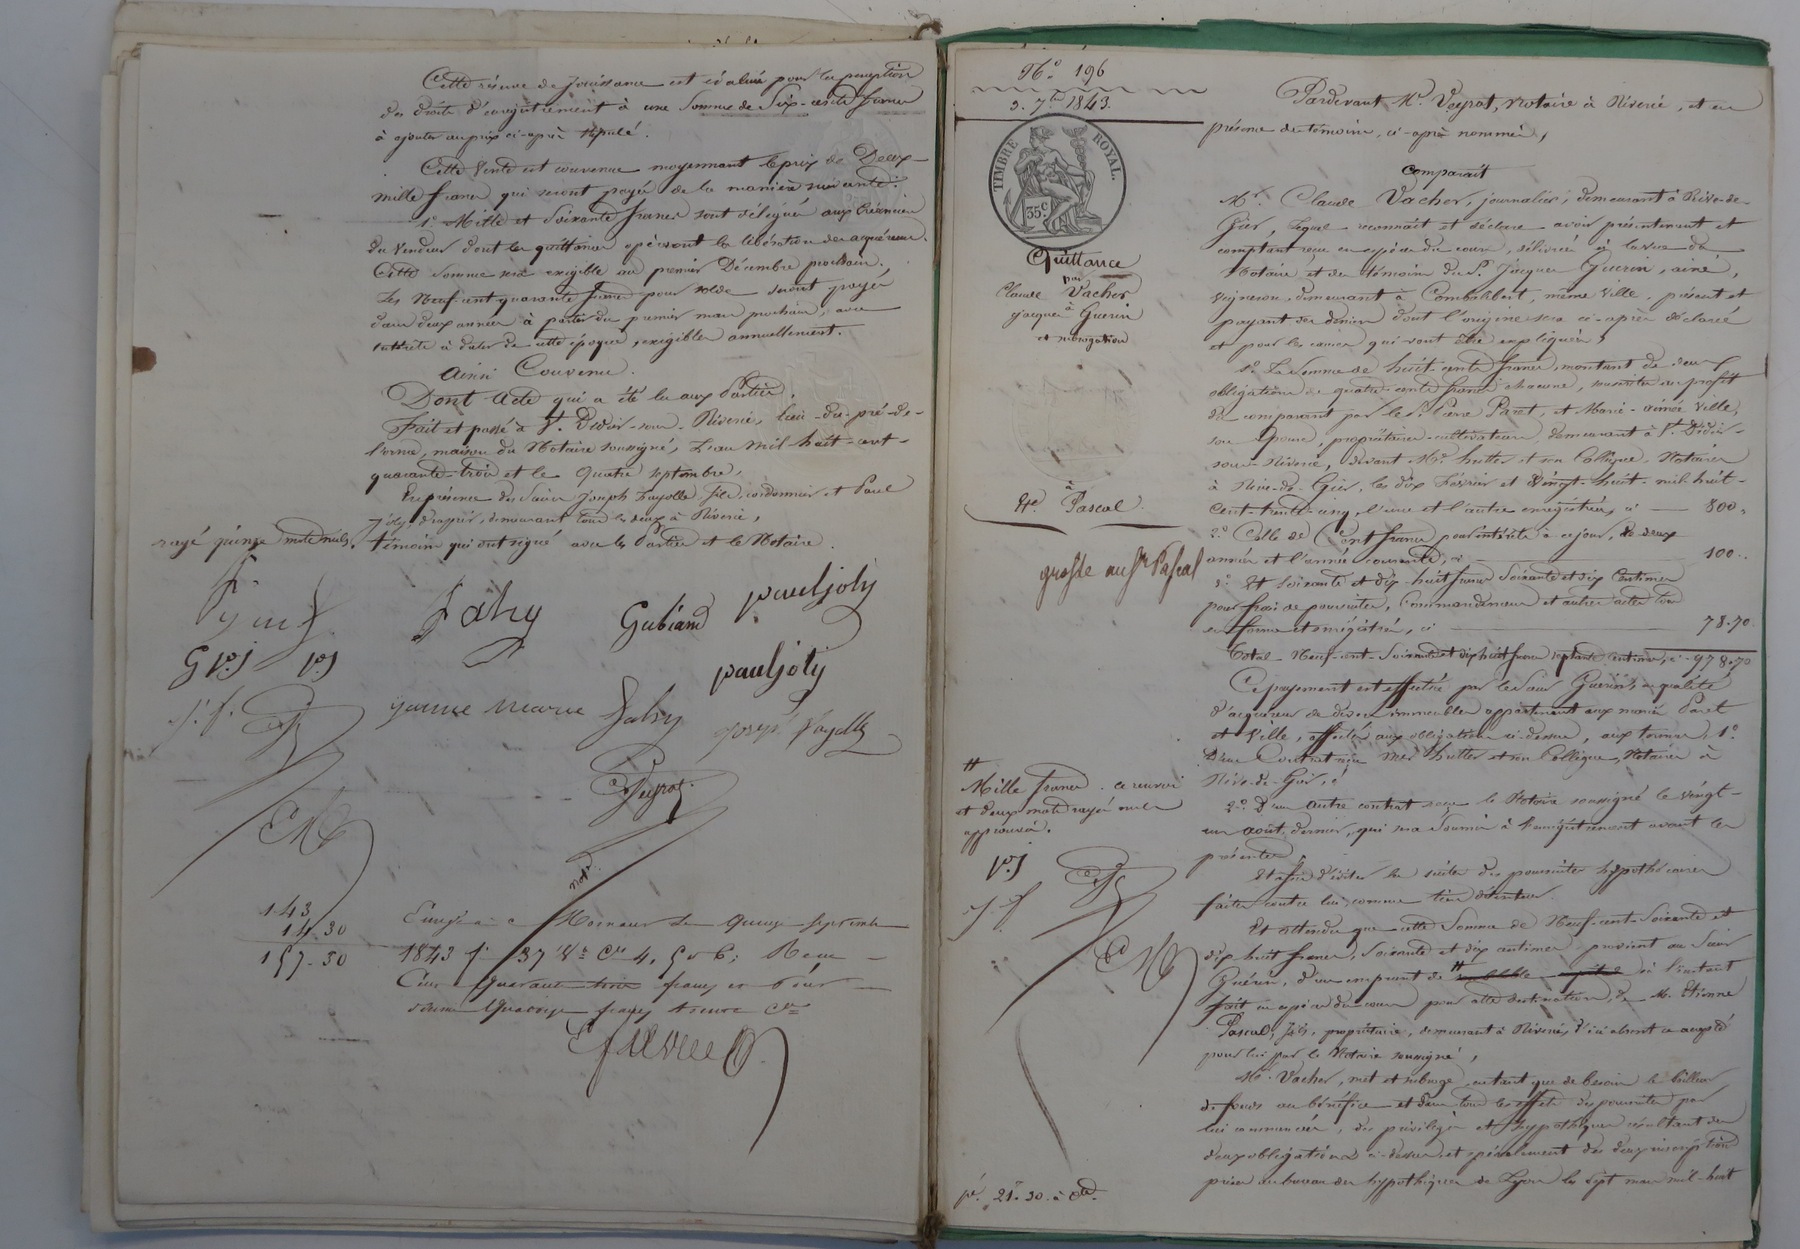 Cette réserve de Jouissance est évaluée pour la perception
des droits d'enregistrement à une Somme de Six-cents francs
à ajouter au prix ci-après stipulé.
Cette Vente est convenue moyennant le prix de Deux-
mille francs qui seront payés de la manière suivante:
1º Mille et Soixante francs sont délégués aux Créanciers
du Vendeur dont les quittances opèreront la libération des acquéreurs.
Cette Somme sera exigible au premier Décembre prochain.
Les Neuf-cent quarante francs pour solde seront payés
dans deux années à partir du premier mars prochain, avec
intérêts à dater de cette époque, exigibles annuellement.
Ainsi Convenu.
Dont Acte qui a été lu aux Parties.
Fait et passé à St. Didier-sous-Riverie, lieu-du-pré-de-
l'orme, maison du Notaire soussigné, L'an mil-huit-cent-
quarante-trois et le quatre septembre,
En présence des Sieurs Joseph Fayolle fils cordonnier et Paul
Joly, drapier, demeurant tous les deux à Riverie,
témoins qui ont signé avec les Parties et le Notaire.
rayé quinze mots nuls.
Gubiand
paul joly
paul joly
jeanne marie
joseph fayolle
Veyrat
notre
143
14.30
157-30
1843 fº 37 Vº Cse 4, 5 et 6; Reçu
Cent Quarante trois francs et pour
Nº 196
5. 7bre 1843.
TIMBRE ROYAL.
35 c
Quittance
par
Claude Vacher
à
Jacques Guerin
et subrogation
à
Pascal
grosse au Sr Pascal
Pardevant Me. Veyrat, Notaire à Riverie, et en
présence des témoins, ci-après nommés,
Comparaît
Mr. Claude Vacher, journalier, demeurant à Rive-de-
Gier, Lequel reconnaît et déclare avoir présentement et
comptant reçu en espèces du cours, délivrées à la vue du
Notaire et des témoins du Sr. Jacques Guerin, ainé,
Vigneron, demeurant à Combalbert, même Ville, présent et
payant des deniers dont l'origine sera ci-après déclarée
et pour les causes qui vont être expliquées,
1º La Somme de huit-cents francs, montant de deux
obligations de quatre-cents francs chacune, souscrites au profit
du comparant par le Sr. Pierre Paret, et Marie-aimée Ville,
son épouse, propriétaires-cultivateurs, demeurant à St. Didier-
sous-Riverie, devant Me. hutter et son Collègue, Notaires
à Rive-de-Gier, les dix fevrier et Vingt-huit mil-huit-
cent-trente-cinq, l'une et l'autre enregistrées, ci 800,
2º Celle de Cent francs pour intérêts à ce jour, de deux
années et l'année courante, ci 100..
3º Et Soixante et dix-huit francs Soixante et dix Centimes
pour frais de poursuites, Commandement et autres actes tous
en forme et enregistrés, ci 78.70
Total Neuf-cent-Soixante et dix huit francs septante Centimes, ci 978.70
Ce payement est effectué par le Sieur Guerin, en qualité
d'acquéreur de divers immeubles appartenant aux mariés Paret
et Ville, affectés aux obligations ci-dessus, aux termes, 1º
D'un Contrat reçu Mes Hutter et son Collègue, Notaires à
Rive-de-Gier,
2º D'un autre contrat reçu le Notaire soussigné le vingt-
un août dernier, qui sera soumis à l'enregistrement avant les
présentes
Et afin d'éviter les suites des poursuites hypothécaires
faites contre lui comme tiers détenteur.
Et attendu que cette Somme de Neuf-cent-Soixante et
dix huit francs, Soixante et dix centimes provient au Sieur
Guérin, d'un emprunt de # à l'instant
fait en espèces du cours pour cette destination, de M. Etienne
Pascal, fils, propriétaire, demeurant à Riverie, d'ici absent ce accepté
pour lui par le Notaire soussigné,
Mr. Vacher, met et subroge, en tant que de besoin le bailleur
de fonds au bénéfice et dans tous les effets des poursuites par
lui commencées, des privilèges et hypothèques résultant des
deux obligations ci-dessus et spécialement des deux inscriptions
prises au bureau des hypothèques de Lyon les sept mars mil-huit
#
Mille francs. ce renvoi
et deux mots rayés nuls
approuvés.